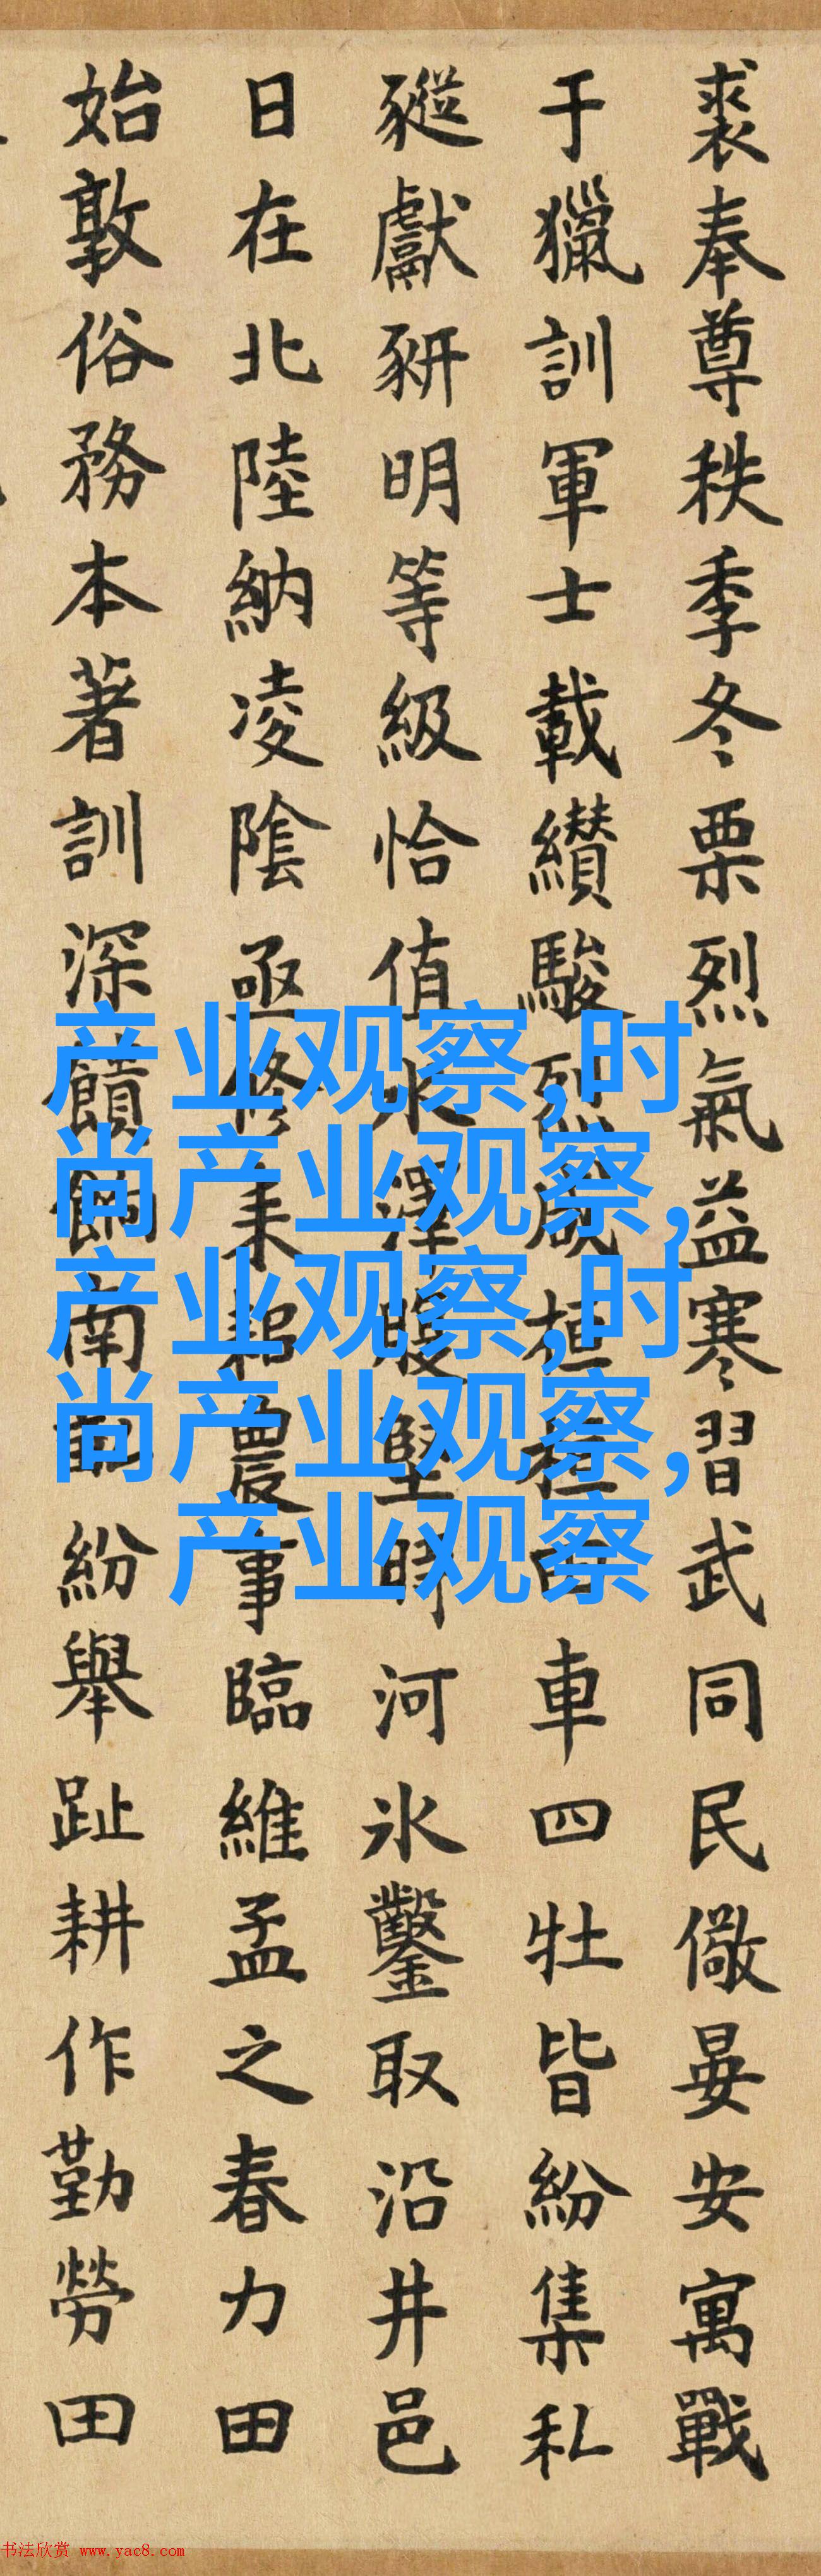 裘奉尊秩季冬栗烈氣益寒習武同民儆晏安寓戰
于獵訓軍士載纘駿烈咸桓桓田車四牡皆紛集私
豵獻豜明等級恰值水澤腹堅時河氷鑿取沿井邑
日在北陸納凌陰亟修耒耜農事臨維孟之春力田
始敦俗務本著訓深饋餉南畝紛舉趾耕作勤勞田
产业观察,时
尚产业观察,
产业观察,时
尚产业观察,
产业观察
书法欣赏 www.yac8.com